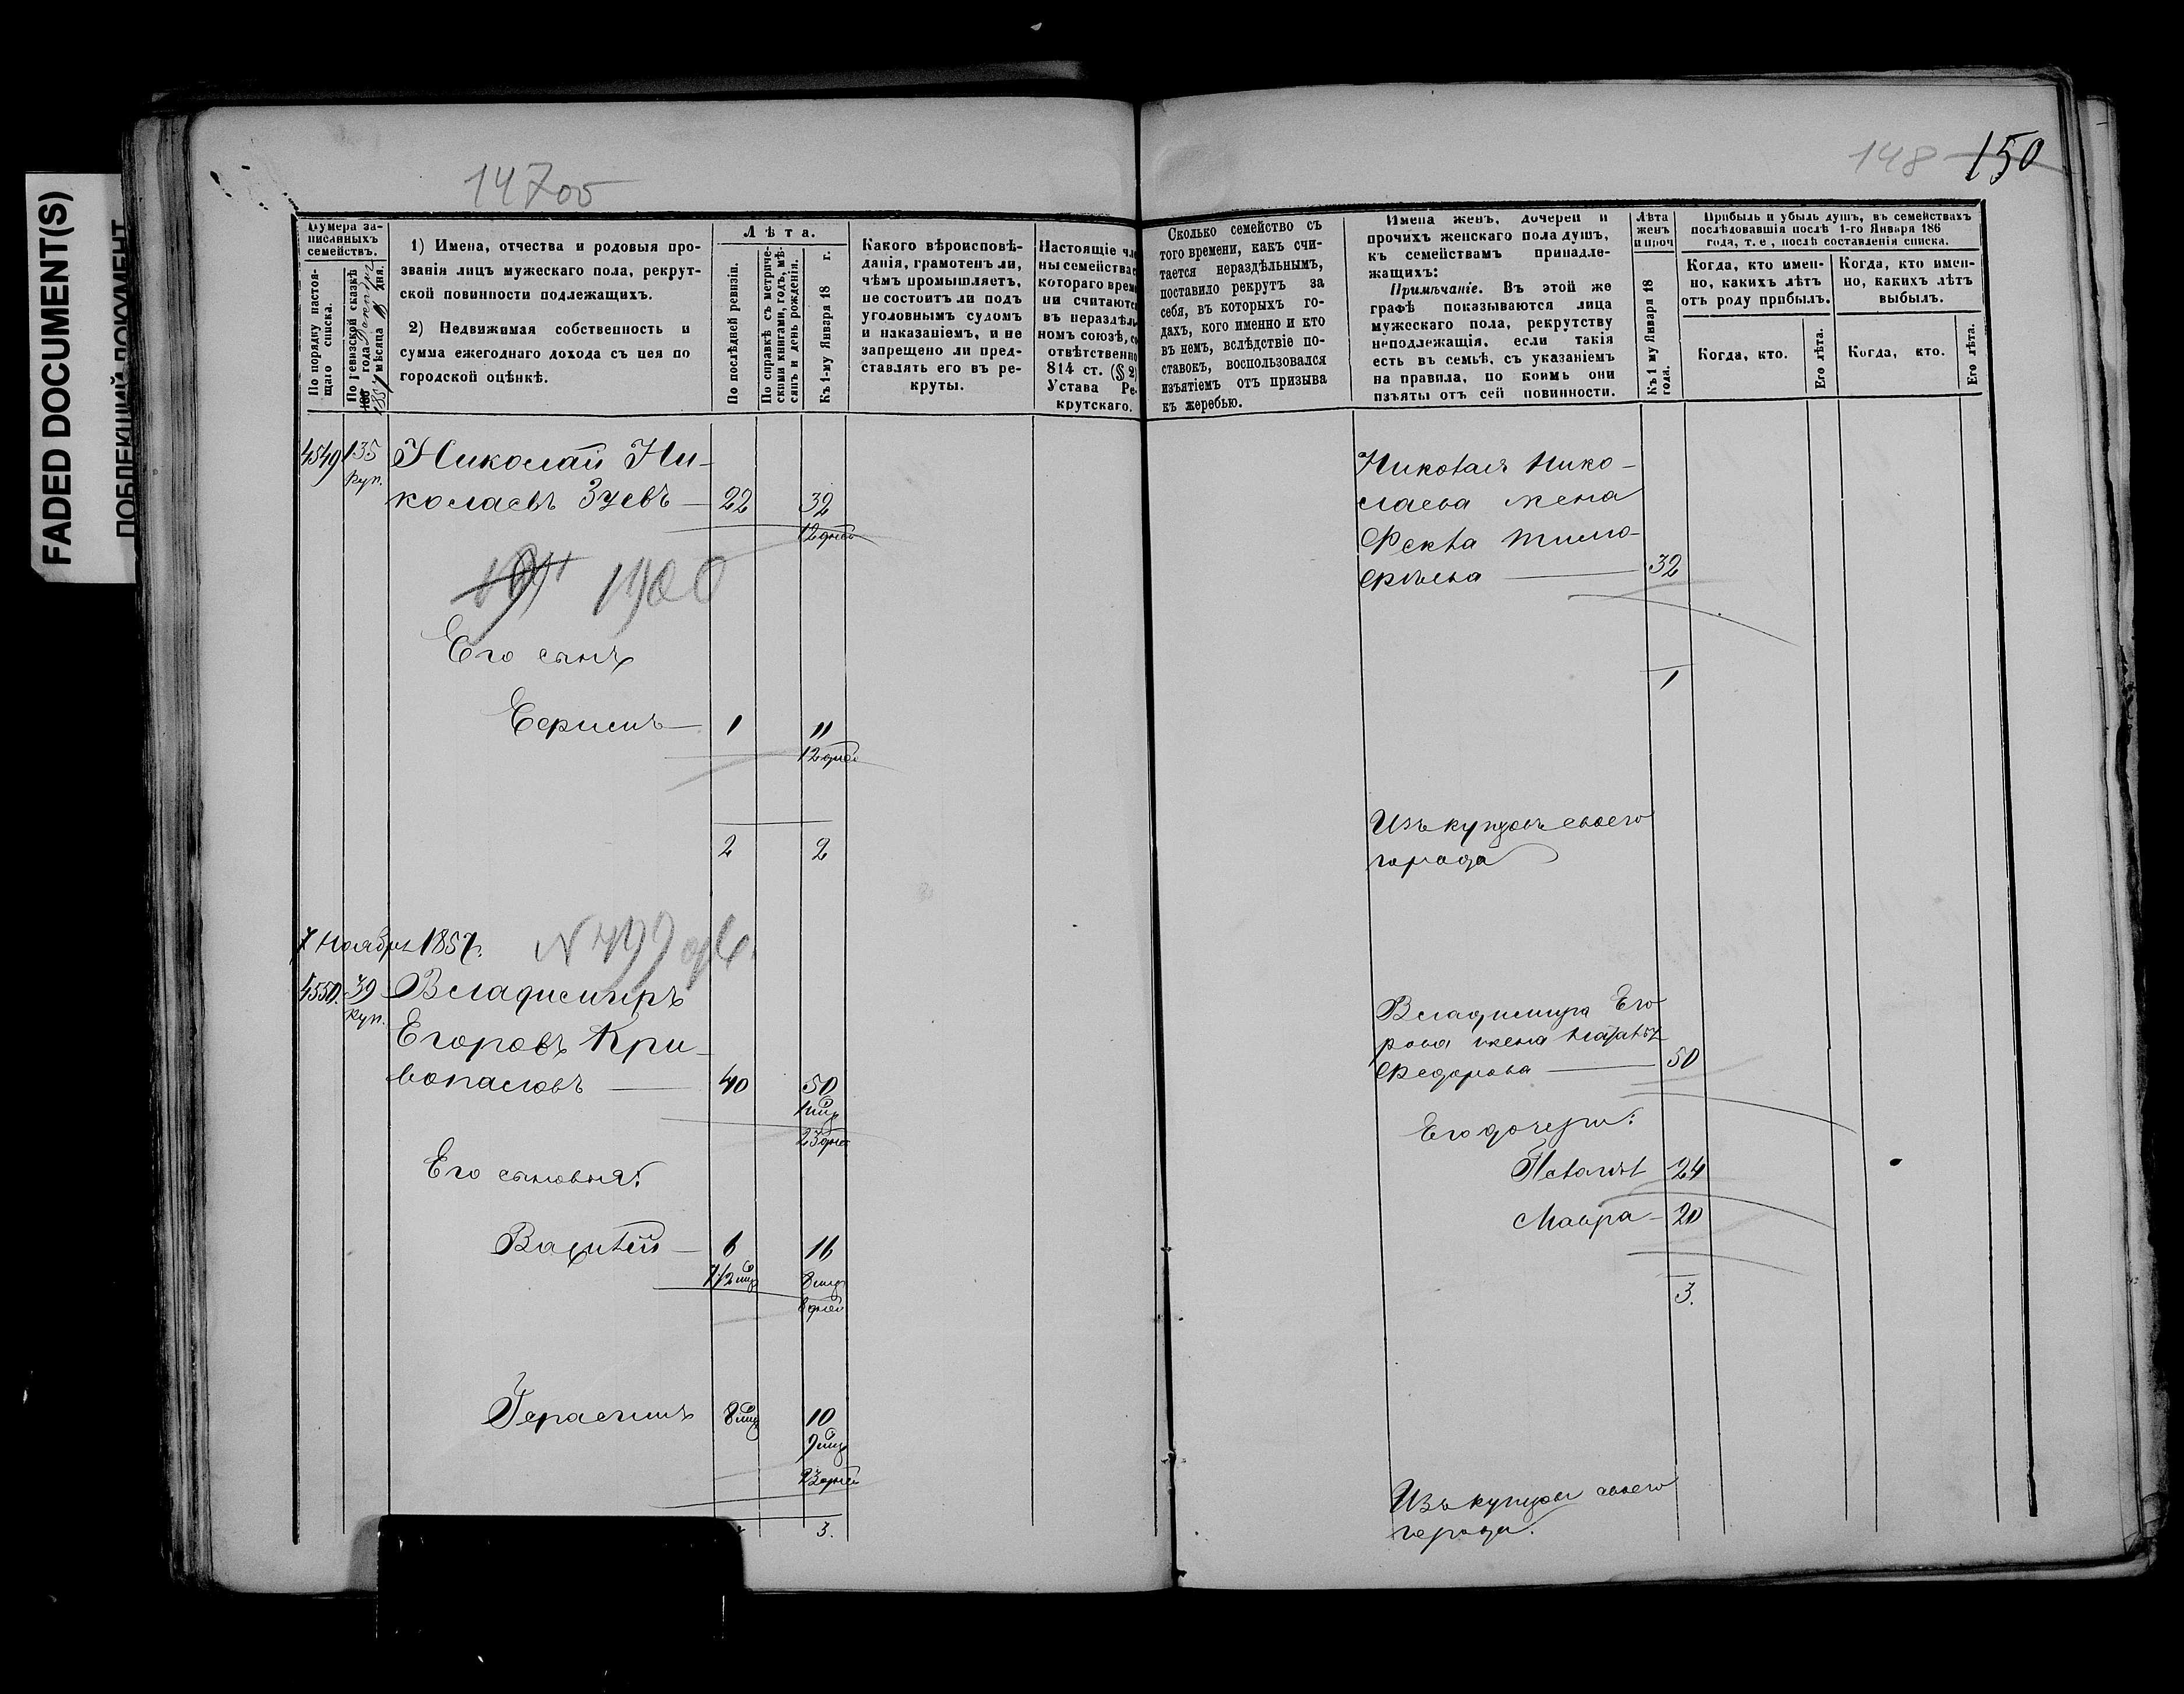 FADED DOCUMENT(S)
147об
148 150
Нумера за-
писанныхъ
семействъ.
По порядку настоя-
щаго списка.
По ревизской сказкѣ
года
мѣсяца дня.
1) Имена, отчества и родовыя про-
званія лицъ мужескаго пола, рекрут-
ской повинности подлежащихъ.
2) Недвижимая собственность и
сумма ежегоднаго дохода съ нея по
городской оцѣнкѣ.
Лѣта.
По послѣдней ревизіи.
По справкѣ съ метриче-
скими книгами, годъ, мѣ-
сяцъ и день рожденія.
Къ 1-му Января 18 г.
Какого вѣроисповѣ-
данія, грамотенъ ли,
чѣмъ промышляетъ,
не состоитъ ли подъ
уголовнымъ судомъ
и наказаніемъ, и не
запрещено ли пред-
ставлять его въ ре-
круты.
Настоящіе чле
ны семейства с
котораго врем
ни считаютс
въ нераздѣль
номъ союзѣ, со
отвѣтственно
814 ст. (§ 2)
Устава Ре-
крутскаго.
Сколько семейство съ
того времени, какъ счи-
тается нераздѣльнымъ,
поставило рекрутъ за
себя, въ которыхъ го-
дахъ, кого именно и кто
въ немъ, вслѣдствіе по-
ставокъ, воспользовался
изъятіемъ отъ призыва
къ жеребью.
Имена женъ, дочерей и
прочихъ женскаго пола душъ,
къ семействамъ принадле-
жащихъ:
Примѣчаніе. Въ этой же
графѣ показываются лица
мужескаго пола, рекрутству
неподлежащія, если такія
есть въ семьѣ, съ указаніемъ
на правила, по коимъ они
изъяты отъ сей повинности.
Лѣта
женъ
и проч
Къ 1 му Января 18
года.
Прибыль и убыль душъ, въ семействахъ
послѣдовавшія послѣ 1-го Января 186
года, т. е., послѣ составленія списка.
Когда, кто имен-
но, какихъ лѣтъ
отъ роду прибылъ.
Когда, кто имен-
но, какихъ лѣтъ
выбылъ.
Когда, кто.
Его лѣта.
Когда, кто.
Его лѣта.
4549 135 Николай Ни-
куп. колаевъ Зуевъ 22 32
12 дней
1900
Его сынъ
Ефимъ 1 11
12 дней
2 2
Николая Нико-
лаева жена
Фекла Тимо-
фѣева 32
1
Изъ купцовъ своего
города
7 Ноября 1857.
4550. 39 Владимиръ
куп. Егоровъ Кри-
вопаловъ 40 50
1 мц
23 дней
Его сыновья:
Василій 6 16
7 1/2 мц 8 мц
8 дней
Герасимъ 8 мц 10
9 мц
23 дней
3.
Владимира Его
рова жена
Федорова 50
Его дочери:
Пелагея 24
Мавра 20
3.
Изъ купцовъ своего
города.